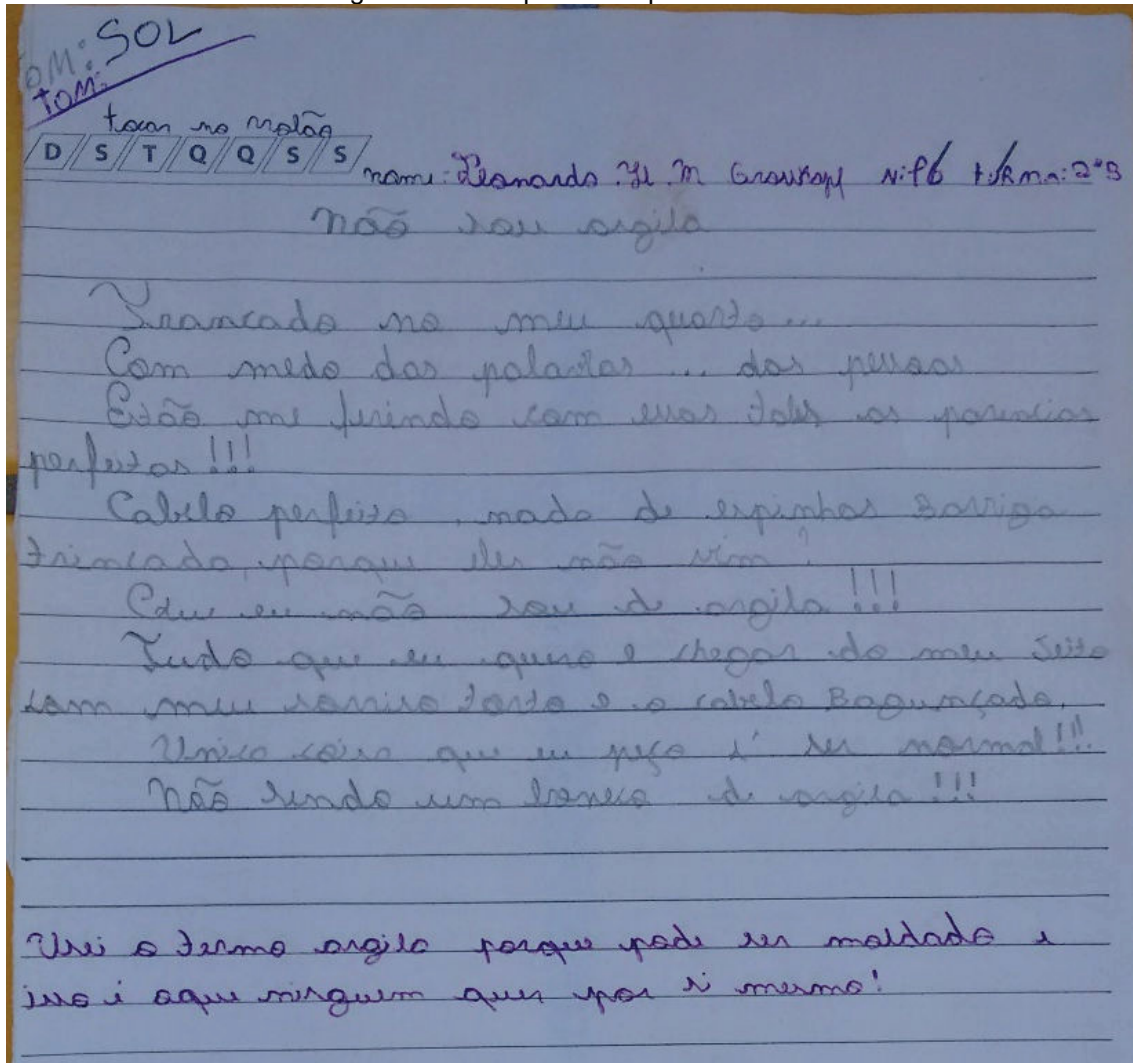 TOM: SOL
TOM:
tocar no violão
D S T Q Q S S
nome: Leonardo. H. M turma: 2°B
Não sou argila
Trancado no meu quarto...
Com medo das palavras ... das pessoas
Estão me ferindo com essas tales as parencias
perfeitas !!!
Cabelo perfeito, nada de espinhas Barriga
trincada, porque eles não vêm ?
Que eu não sou de argila !!!
Tudo que eu quero e chegar do meu Jeito
com meu sorriso torto e o cabelo Bagunçado.
Unica coisa que eu peço é ser normal!!!
Não sendo um boneco de argila !!!
Usei o termo argila porque pode ser moldado e
isso é aque ninguem quer por si mesmo!